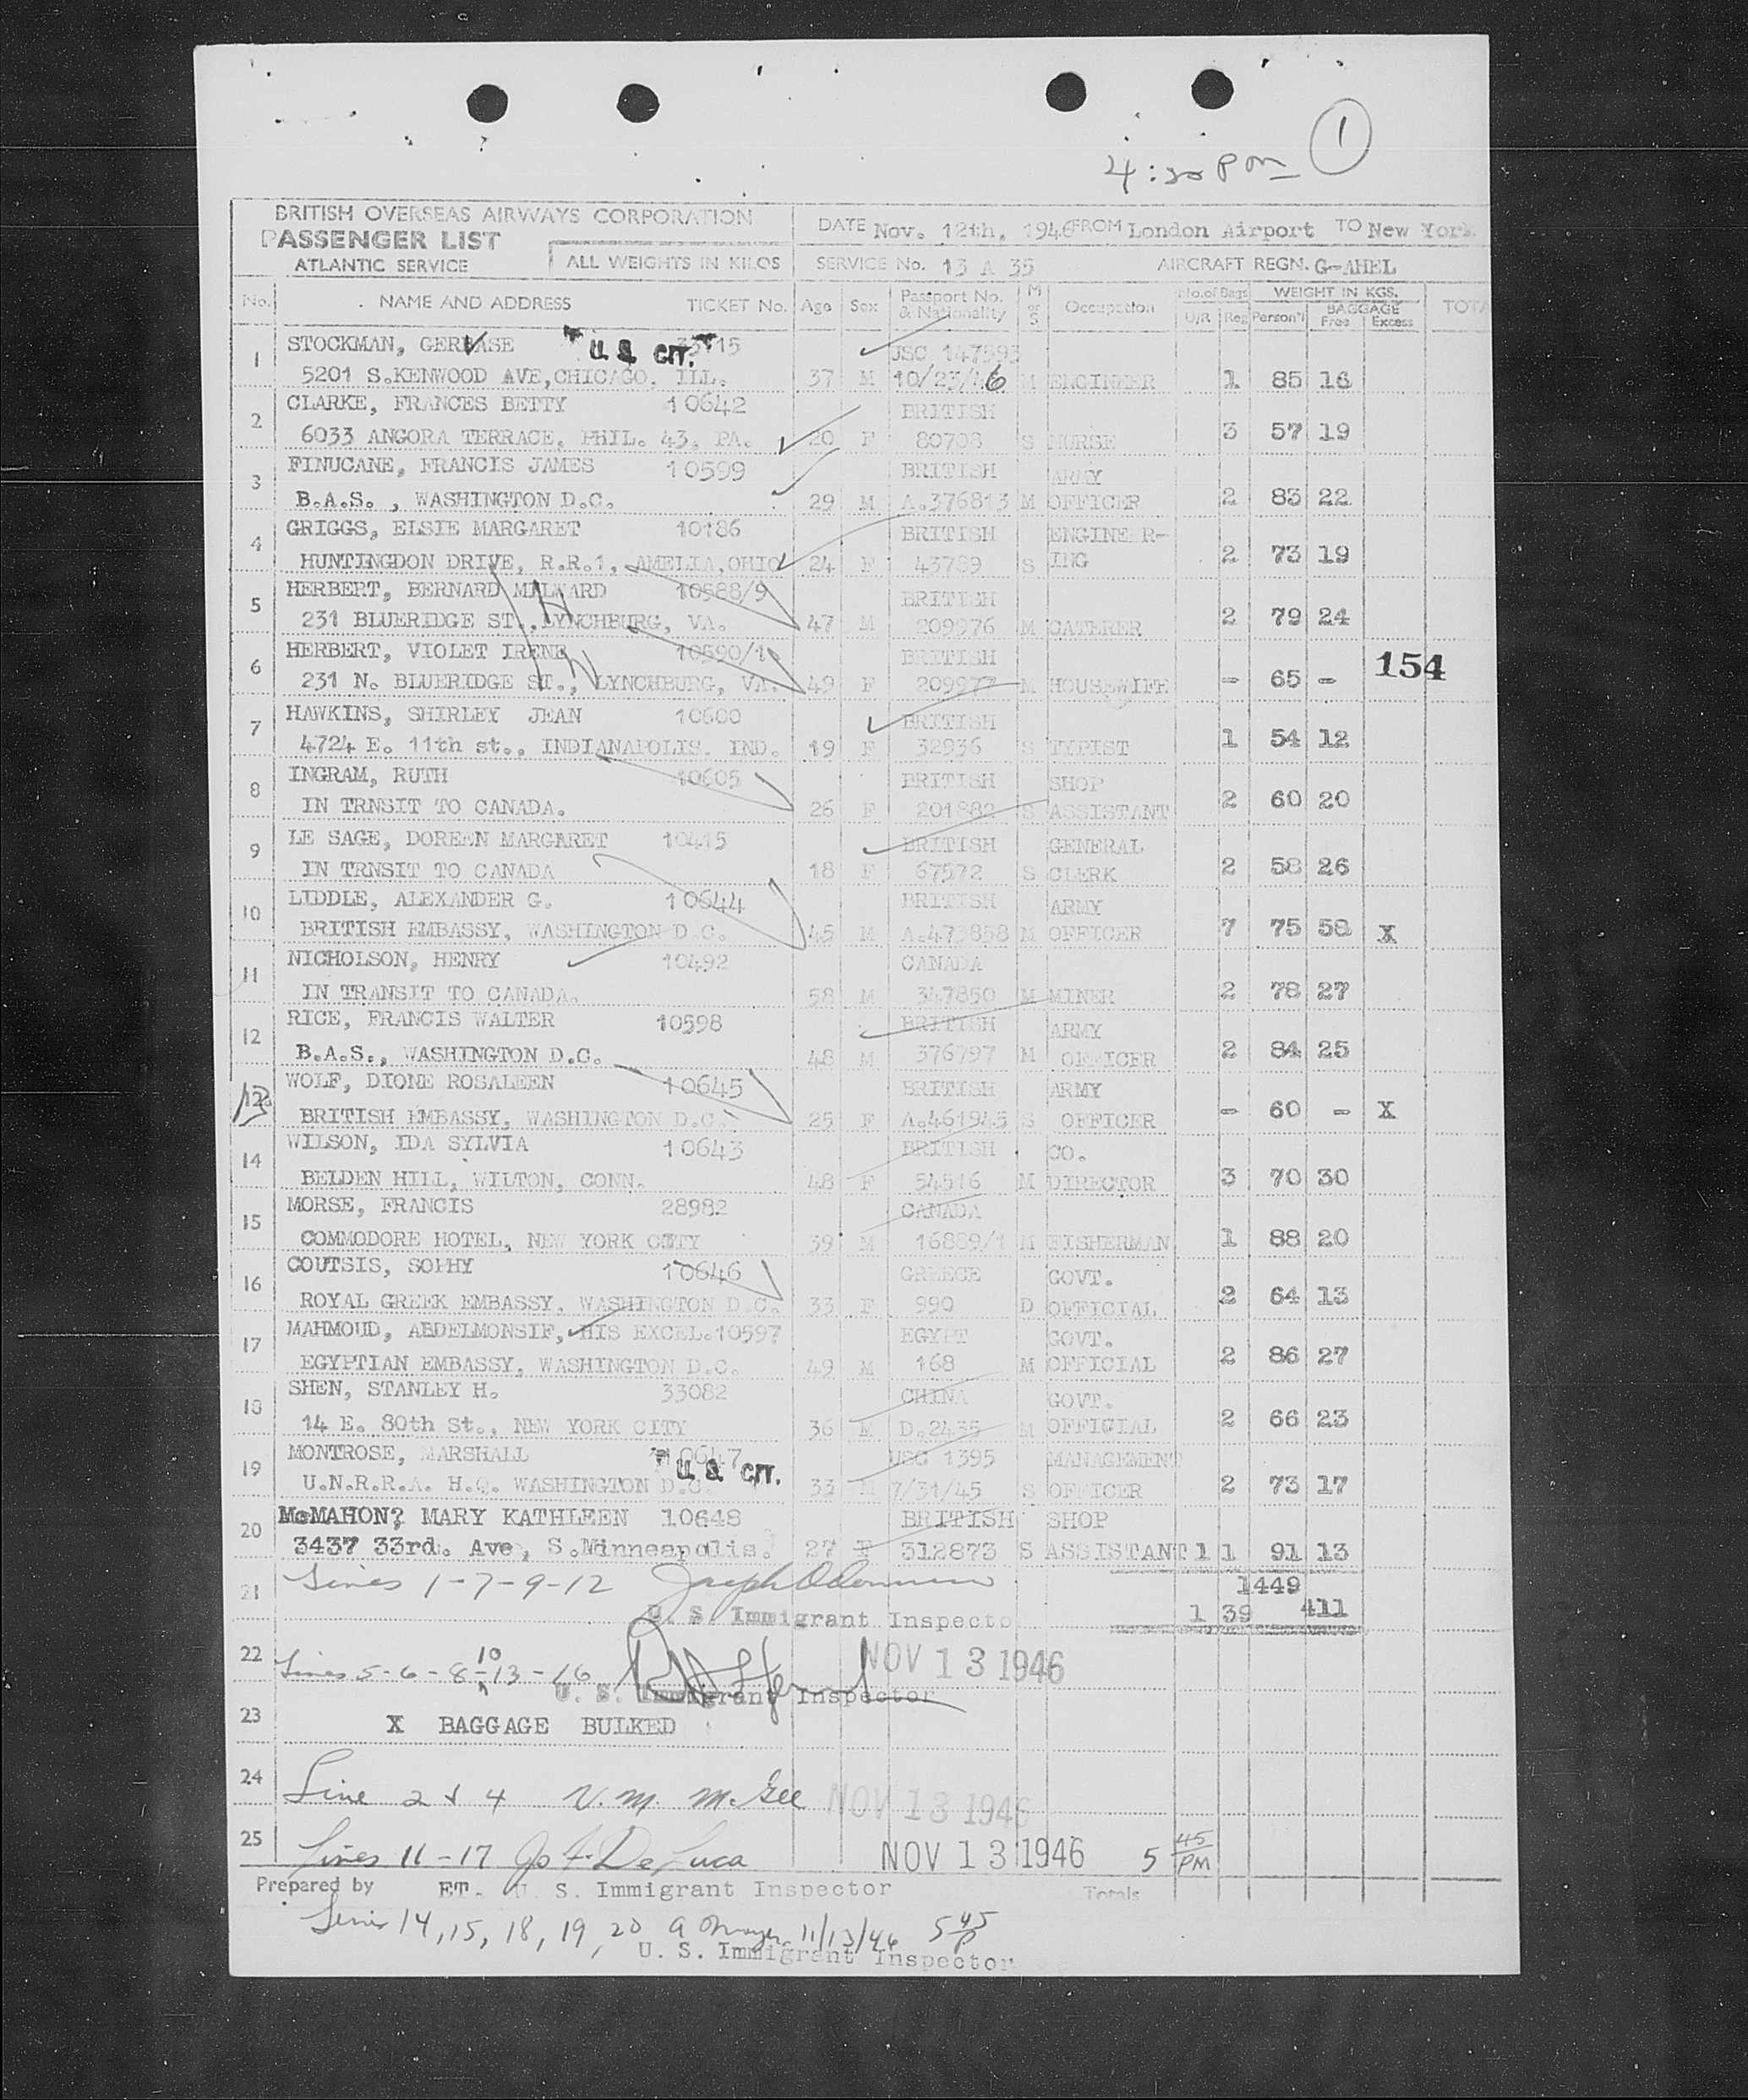 1
4:30 PM
BRITISH OVERSEAS AIRWAYS CORPORATION
PASSENGER LIST
ATLANTIC SERVICE ALL WEIGHTS IN KILOS
DATE Nov. 12th, 1946 FROM London Airport TO New York
SERVICE No. 13 A 35 AIRCRAFT REGN. G-AHEL
No. NAME AND ADDRESS TICKET No. Age Sex Passport No. & Nationality M or S Occupation No. of Bags U/R Reg WEIGHT IN KGS. Person'l BAGGAGE Free Excess TOTA
1 STOCKMAN, GERVASE U.S. CIT. USC 147593
5201 S.KENWOOD AVE,CHICAGO. ILL. 37 M 10/23/46 M ENGINEER 1 85 16
2 CLARKE, FRANCES BETTY 10642 BRITISH
6033 ANGORA TERRACE, PHIL. 43. PA. 20 F 80708 S NURSE 3 57 19
3 FINUCANE, FRANCIS JAMES 10599 BRITISH ARMY
B.A.S. , WASHINGTON D.C. 29 M A.376813 M OFFICER 2 83 22
4 GRIGGS, ELSIE MARGARET 10186 BRITISH ENGINEER-
HUNTINGDON DRIVE, R.R.1, AMELIA,OHIO 24 F 43789 S ING 2 73 19
5 HERBERT, BERNARD MILWARD 10588/9 BRITISH
231 BLUERIDGE ST.,LYNCHBURG, VA. 47 M 209976 M CATERER 2 79 24
6 HERBERT, VIOLET IRENE 10590/1 BRITISH
231 N. BLUERIDGE ST., LYNCHBURG, VA. 49 F 209977 M HOUSEWIFE - 65 - 154
7 HAWKINS, SHIRLEY JEAN 10600 BRITISH
4724 E. 11th st., INDIANAPOLIS. IND. 19 F 32936 S TYPIST 1 54 12
8 INGRAM, RUTH 10605 BRITISH SHOP
IN TRNSIT TO CANADA. 26 F 201882 S ASSISTANT 2 60 20
9 LE SAGE, DOREEN MARGARET 10415 BRITISH GENERAL
IN TRNSIT TO CANADA 18 F 67572 S CLERK 2 58 26
10 LIDDLE, ALEXANDER G. 10644 BRITISH ARMY
BRITISH EMBASSY, WASHINGTON D.C. 45 M A.473858 M OFFICER 7 75 58 X
11 NICHOLSON, HENRY 10492 CANADA
IN TRANSIT TO CANADA. 58 M 347850 M MINER 2 78 27
12 RICE, FRANCIS WALTER 10598 BRITISH ARMY
B.A.S., WASHINGTON D.C. 48 M 376797 M OFFICER 2 84 25
13 WOLF, DIONE ROSALEEN 10645 BRITISH ARMY
BRITISH EMBASSY, WASHINGTON D.C. 25 F A.461945 S OFFICER - 60 - X
14 WILSON, IDA SYLVIA 10643 BRITISH CO.
BELDEN HILL, WILTON, CONN. 48 F 54516 M DIRECTOR 3 70 30
15 MORSE, FRANCIS 28982 CANADA
COMMODORE HOTEL, NEW YORK CITY 39 M 16889/1 M FISHERMAN 1 88 20
16 COUTSIS, SOPHY 10646 GREECE GOVT.
ROYAL GREEK EMBASSY, WASHINGTON D.C. 33 F 990 D OFFICIAL 2 64 13
17 MAHMOUD, ABDELMONSIF, HIS EXCEL.10597 EGYPT GOVT.
EGYPTIAN EMBASSY, WASHINGTON D.C. 49 M 168 M OFFICIAL 2 86 27
18 SHEN, STANLEY H. 33082 CHINA GOVT.
14 E. 80th St., NEW YORK CITY 36 M D.2435 M OFFICIAL 2 66 23
19 MONTROSE, MARSHALL 10647 U.S. CIT. USC 1395 MANAGEMENT
U.N.R.R.A. H.Q. WASHINGTON D.C. 33 M 7/31/45 S OFFICER 2 73 17
20 McMAHON? MARY KATHLEEN 10648 BRITISH SHOP
3437 33rd. Ave, S.Minneapolis. 27 F 312873 S ASSISTANT 1 1 91 13
21 Lines 1-7-9-12 1449
U. S. Immigrant Inspecto 1 39 411
22 Lines 5-6-8-10-13-16 NOV 13 1946
U. S. Immigrant Inspector
23 X BAGGAGE BULKED
24 Line 2 & 4 V. M. McGee NOV 13 1946
25 Lines 11-17 Jos F. De Luca NOV 13 1946 5 45 PM
Prepared by ET. U. S. Immigrant Inspector Totals
Lines 14, 15, 18, 19, 20 11/13/46 5 45 P
U. S. Immigrant Inspector